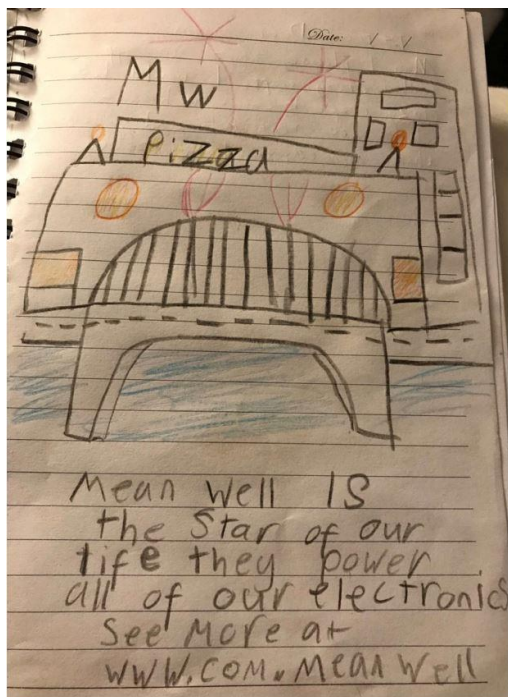 Date:
Mw
pizza
Mean Well IS
the Star of our
life they power
all of our electronics
See More at
WWW.COM.Mean Well